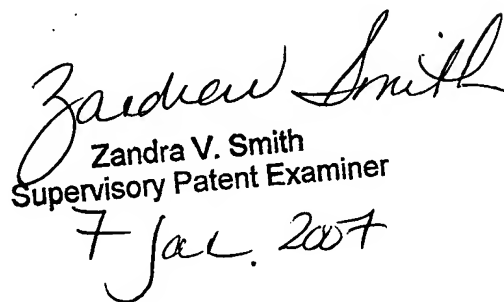 Zandra V. Smith
Zandra V. Smith
Supervisory Patent Examiner
7 Jan. 2007